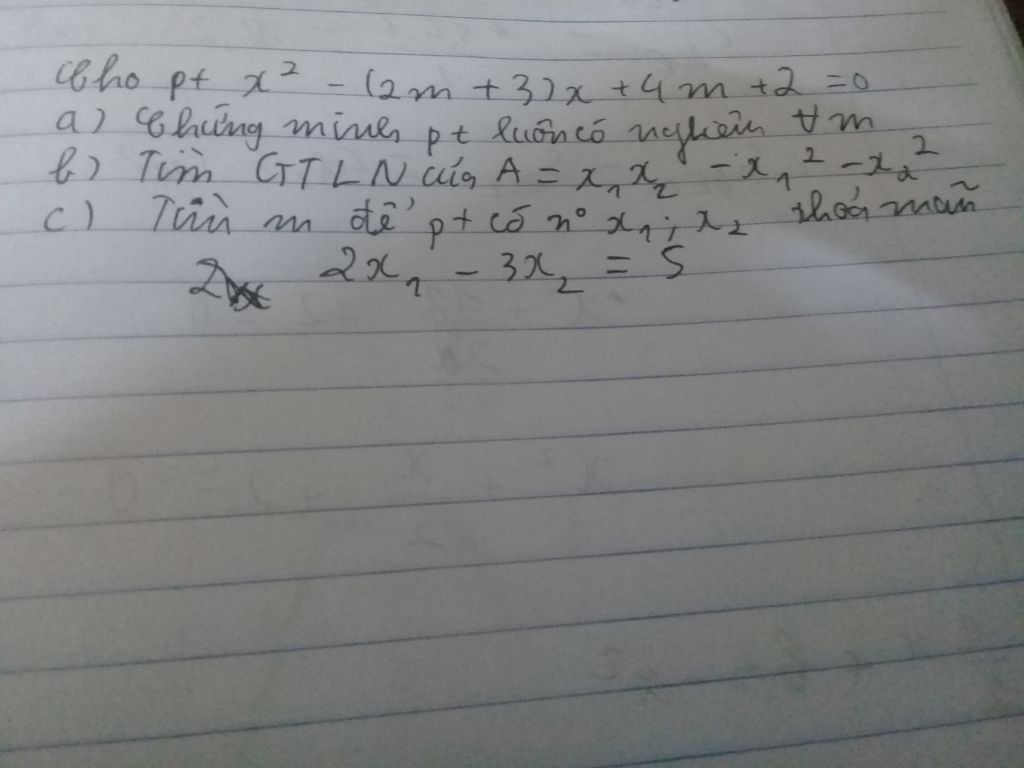 Cho pt x² - (2m + 3)x + 4m + 2 = 0
a) Chứng minh pt luôn có nghiệm ∀m
b) Tìm GTLN của A = x₁x₂ - x₁² - x₂²
c) Tìm m để pt có n⁰ x₁; x₂ thoả mãn
2x₁ - 3x₂ = 5